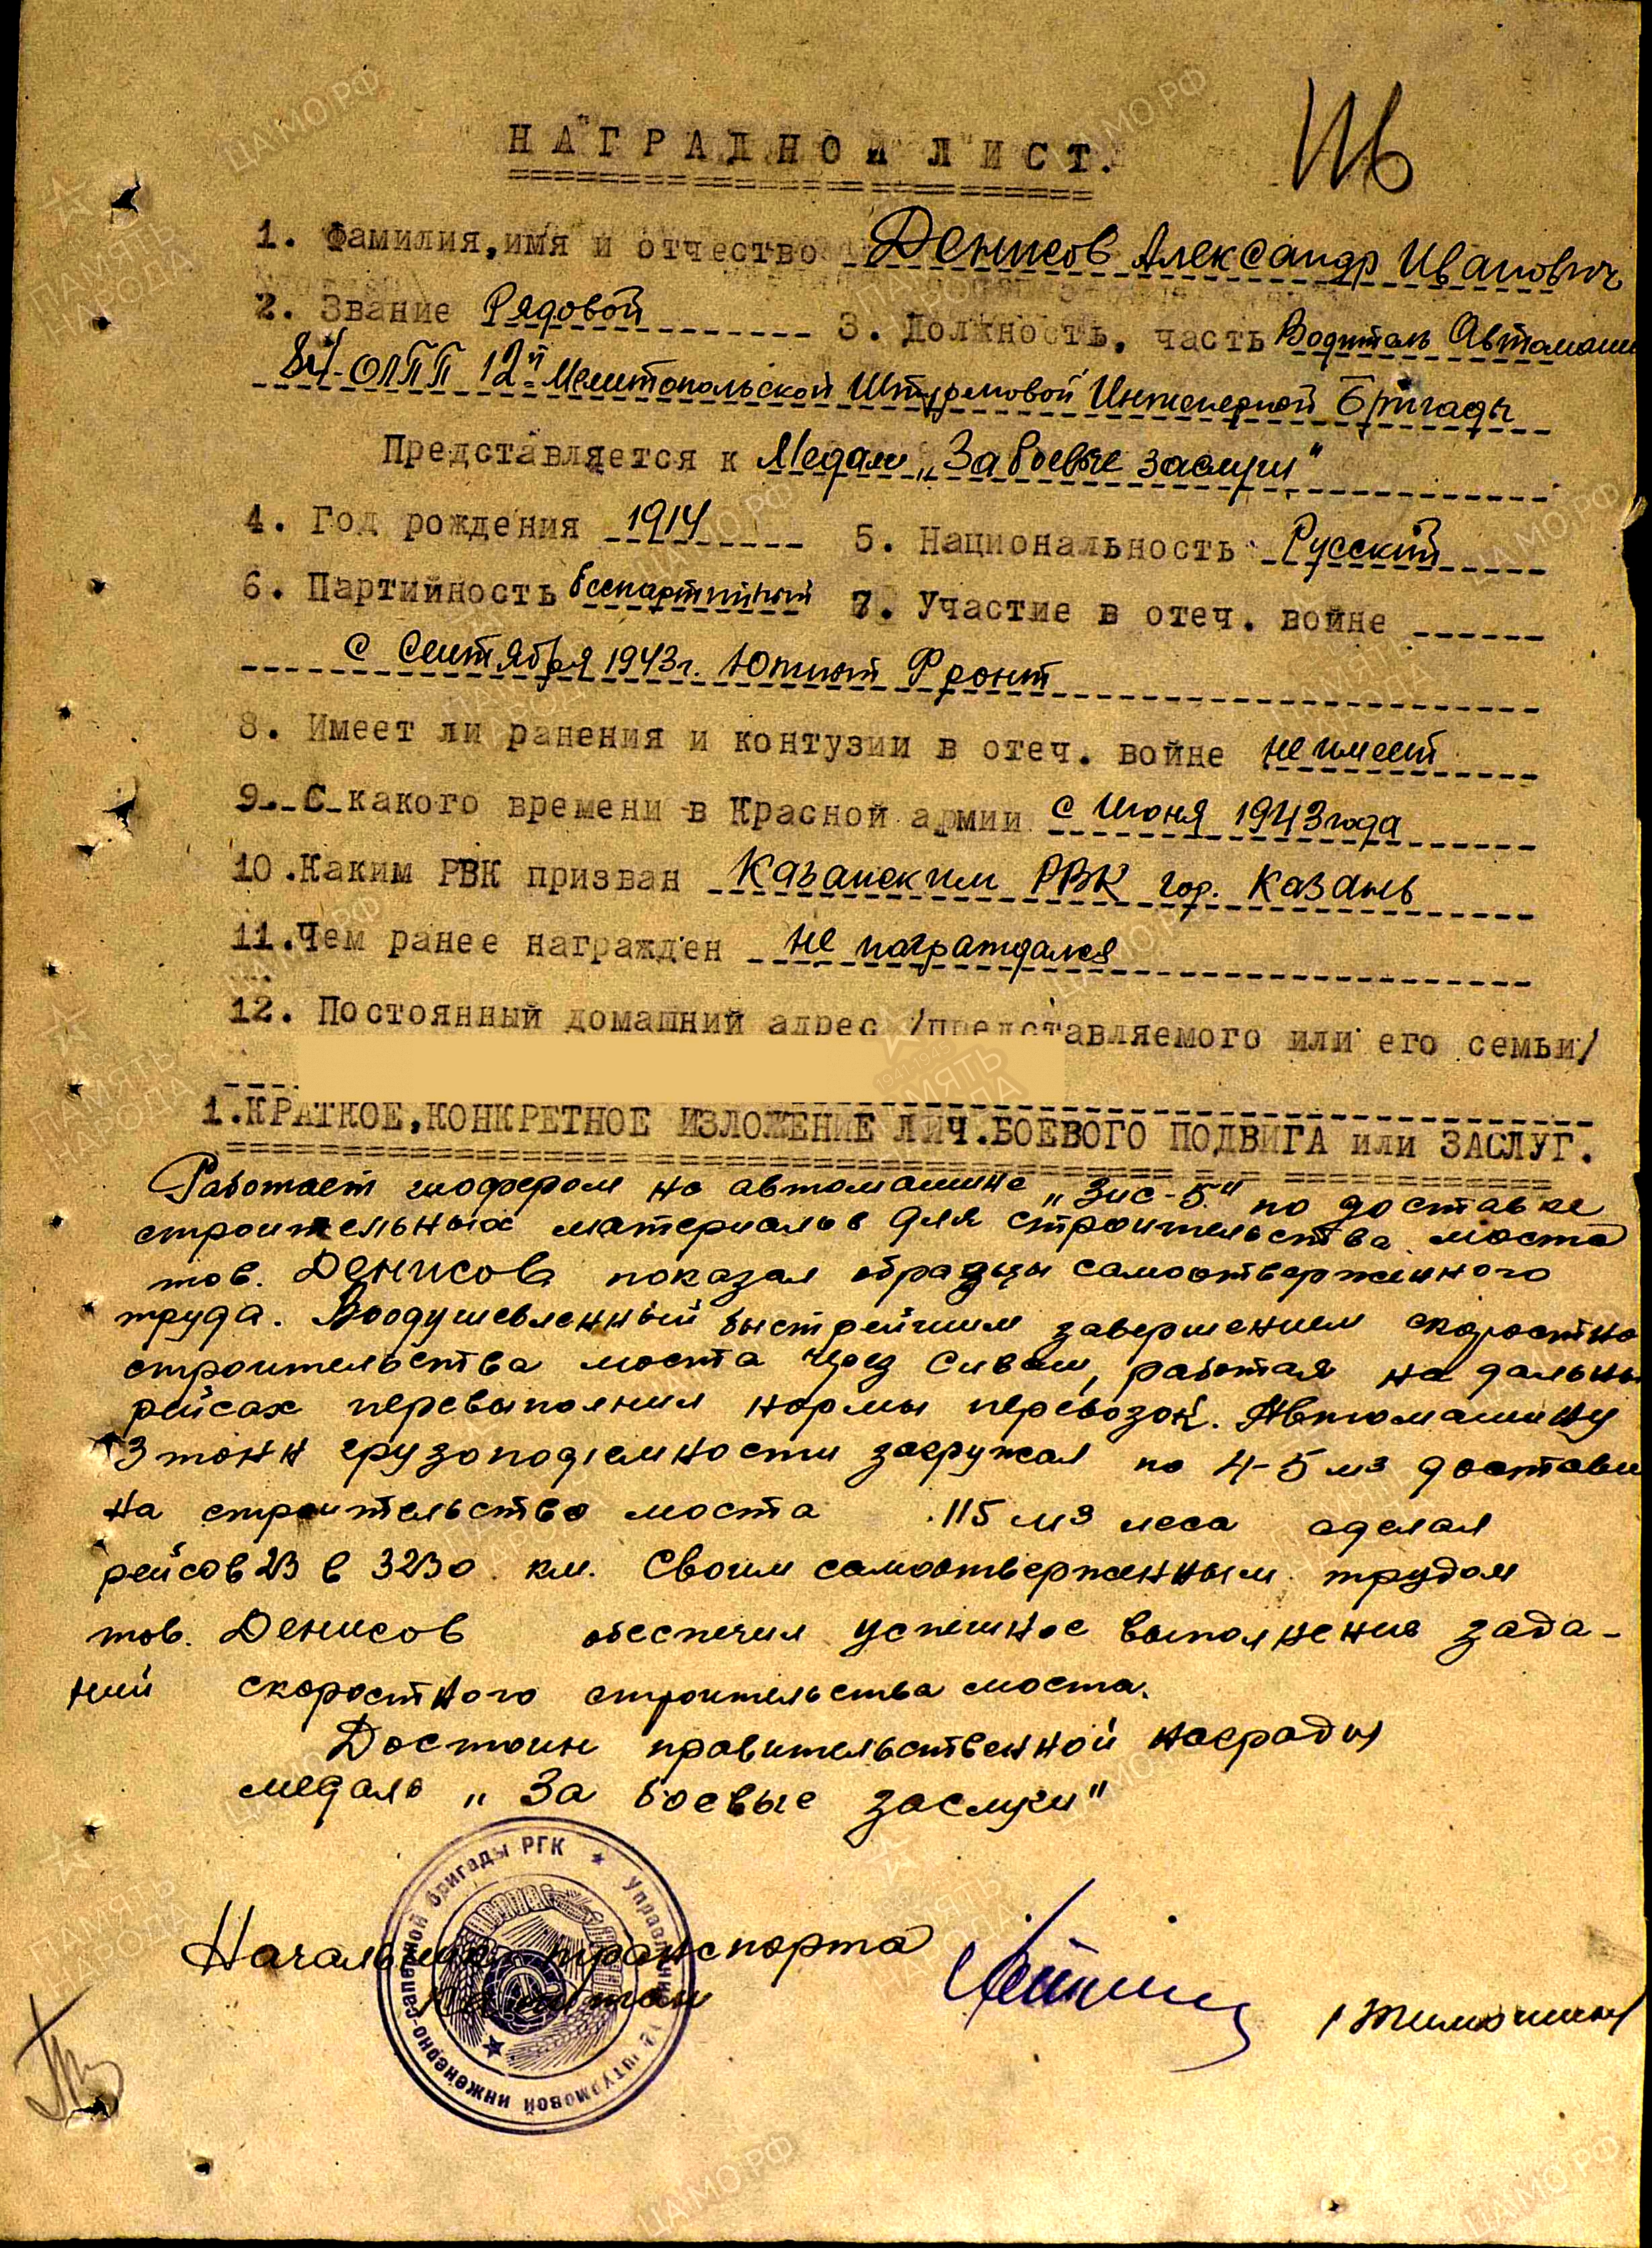 НАГРАДНОЙ ЛИСТ.
1. Фамилия,имя и отчество Денисов Александр Иванович
2. Звание Рядовой 3. Должность, часть Водитель Автомаши
ОЛПП 12й Мелитопольской Штурмовой Инженерной Бригады
Представляется к Медали „За боевые заслуги"
4. Год рождения 1914 5. Национальность Русский
6. Партийность беспартийный 7. Участие в отеч. войне
с Сентября 1943г. Южный Фронт
8. Имеет ли ранения и контузии в отеч. войне не имеет
9. С какого времени в Красной армии с Июня 1943 года
10.Каким РВК призван Казанским РВК гор. Казань
11.Чем ранее награжден не награждался
12. Постоянный домашний адрес /представляемого или его семьи/
1.КРАТКОЕ,КОНКРЕТНОЕ ИЗЛОЖЕНИЕ ЛИЧ.БОЕВОГО ПОДВИГА или ЗАСЛУГ.
Работает шофером на автомашине „Зис-5" по доставке
строительных материалов для строительства моста
тов. Денисов показал образцы самоотверженного
труда. Воодушевленный быстрейшим завершением скоростно
строительства моста через Сиваш, работая на дальны
рейсах перевыполнил нормы перевозок. Автомашину
3 тонн грузоподъемности загружал по 4-5 м3 достави
на строительство моста 115 м3 леса сделал
рейсов 23 в 3230 км. Своим самоотверженным трудом
тов. Денисов обеспечил успешное выполнение зада-
ний скоростного строительства моста.
Достоин правительственной награды
медаль „За боевые заслуги"
бригады РГК ★ Управление 12 штурмовой инженерно-саперной
Начальник транспорта
Капитан
ЦАМО.РФ
ПАМЯТЬ
НАРОДА